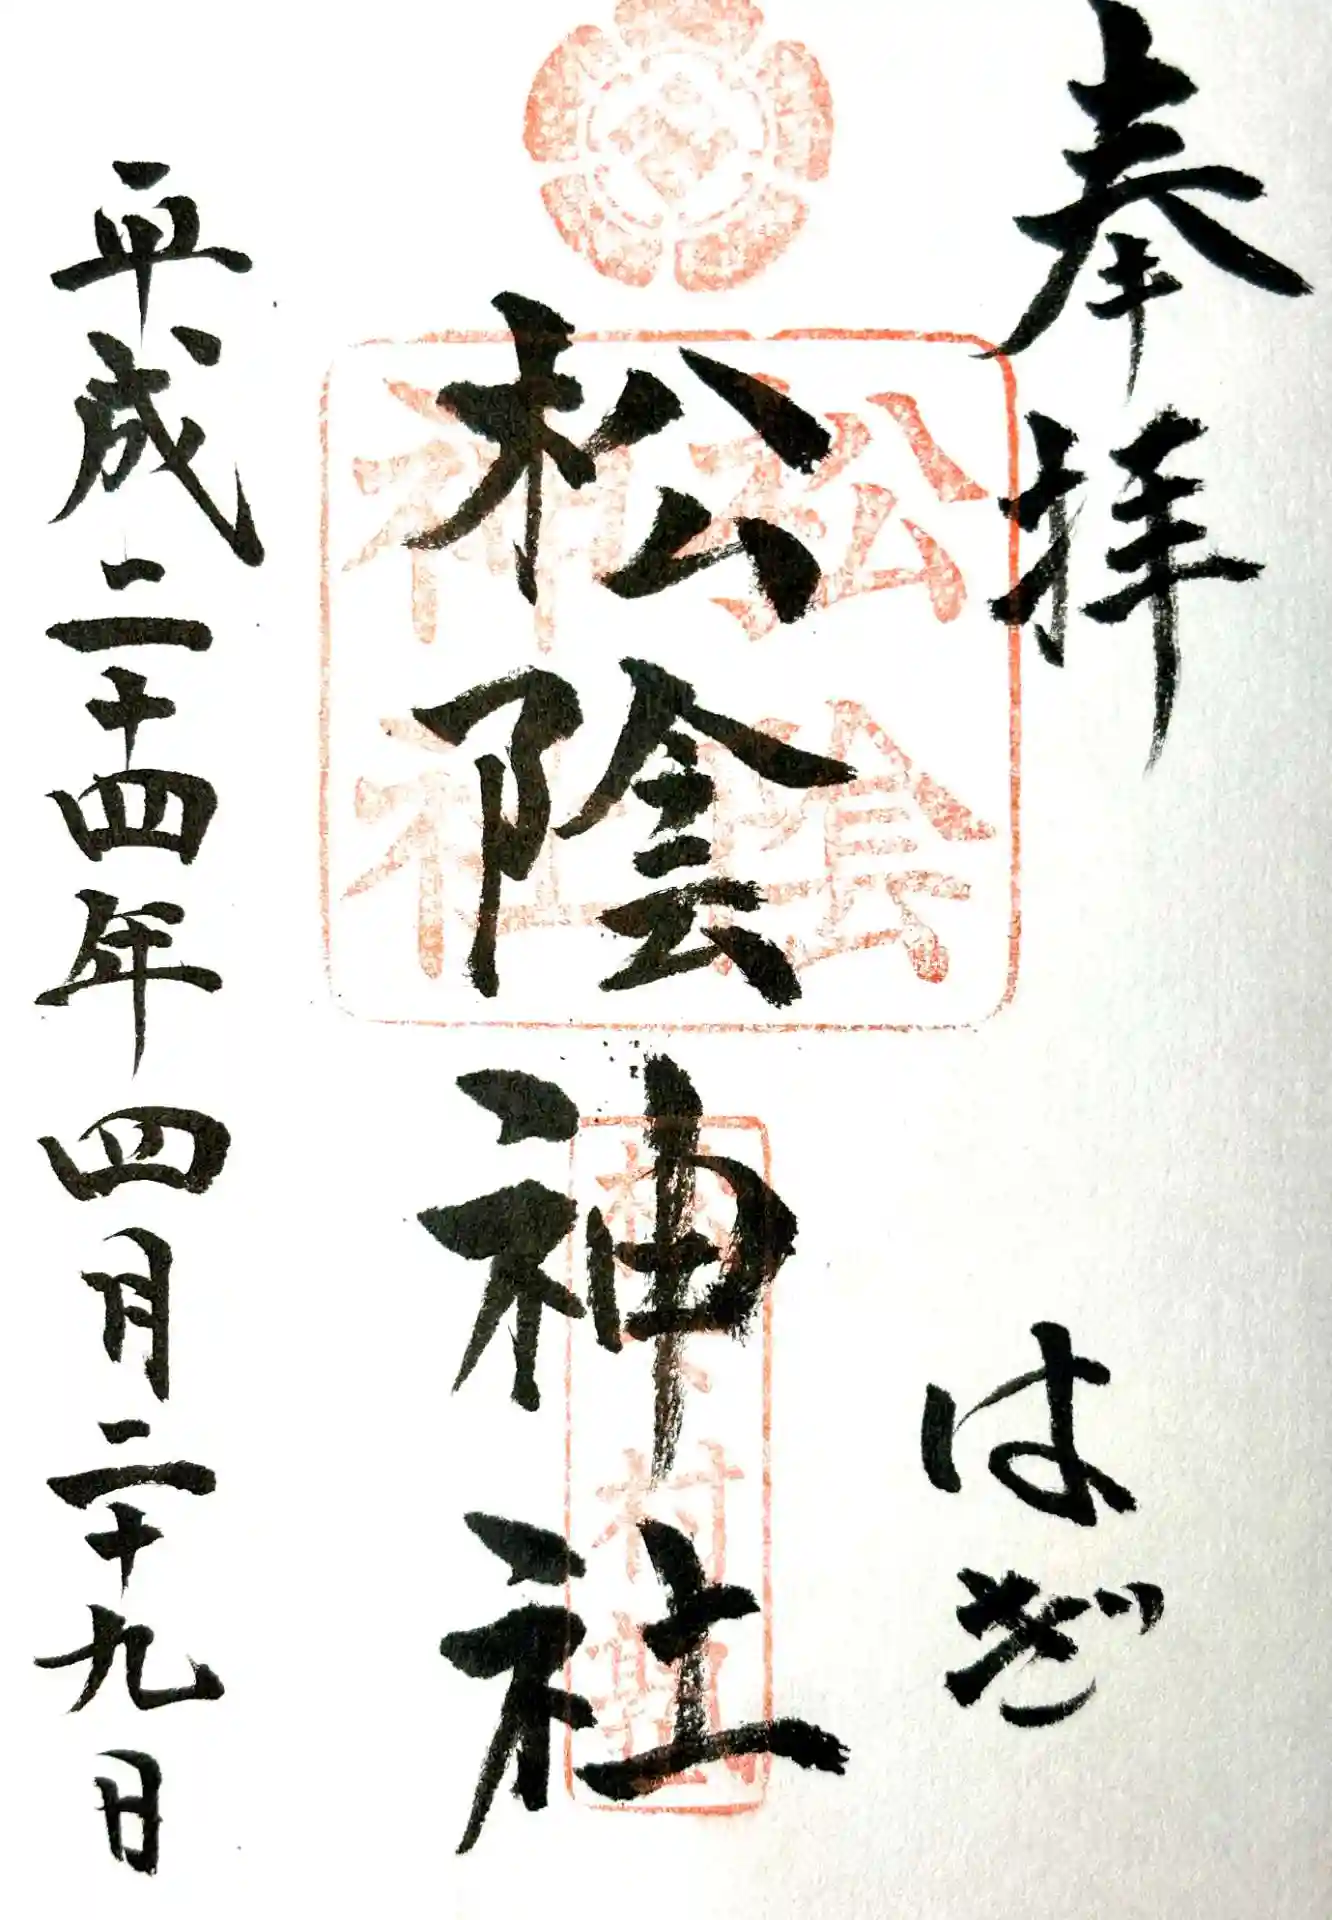 奉拝
はぎ
松陰神社
松陰神社
松下村塾
平成二十四年四月二十九日